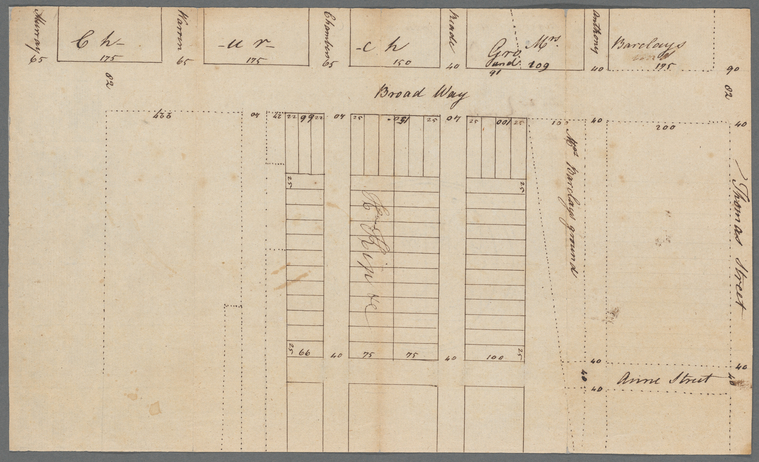 Murray
65
Ch-
175
Warren
65
-ur-
175
Chambers
65
-ch
150
Reade
40
Mrs.
Gro
und
91
209
Anthony
40
Barclays
195
90
Broad Way
82
82
466
40
25
22
66
22
40
25
150
25
40
25
100
25
40
200
40
25
25
Mrs. Barclays ground
Thomas Street
H. Kip &c
25
66
40
75
75
40
100
25
40
40
40
40
40
Anne Street